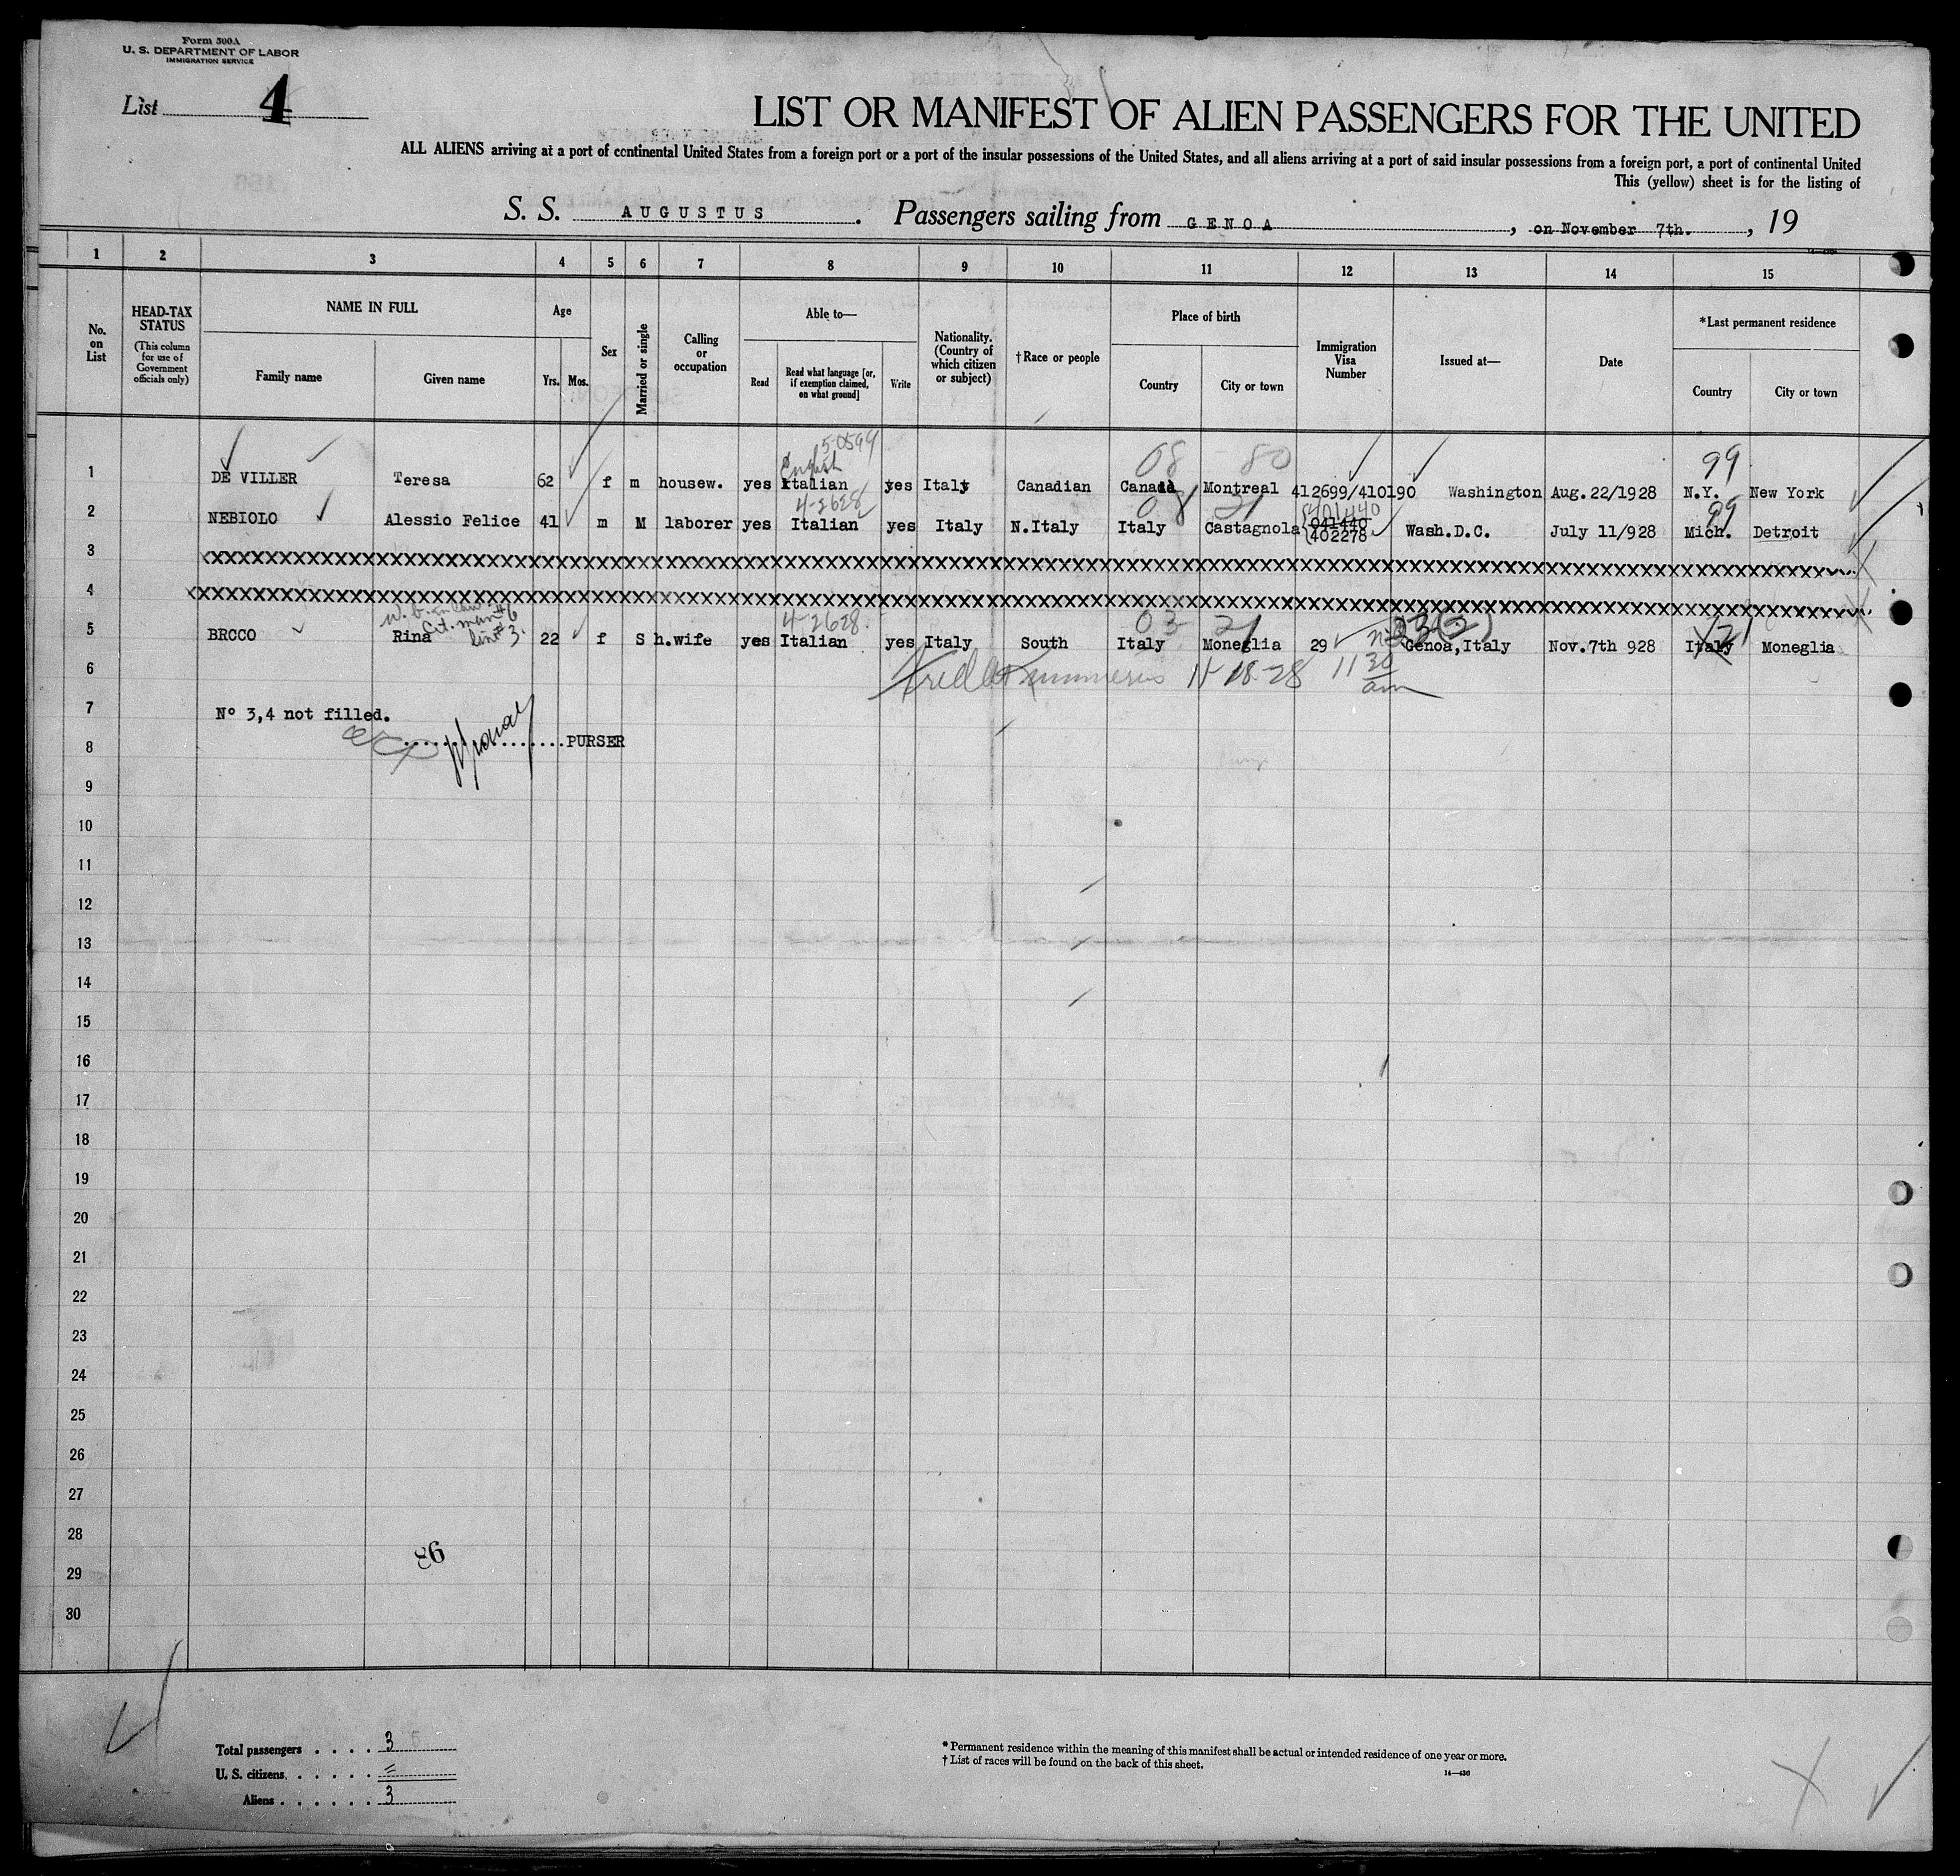 Form 500A
U. S. DEPARTMENT OF LABOR
IMMIGRATION SERVICE
List 4
LIST OR MANIFEST OF ALIEN PASSENGERS FOR THE UNITED
ALL ALIENS arriving at a port of continental United States from a foreign port or a port of the insular possessions of the United States, and all aliens arriving at a port of said insular possessions from a foreign port, a port of continental United
This (yellow) sheet is for the listing of
S. S. AUGUSTUS . Passengers sailing from GENOA , on November 7th. , 19
1 2 3 4 5 6 7 8 9 10 11 12 13 14 15
No. on List
HEAD-TAX STATUS
(This column for use of Government officials only)
NAME IN FULL
Family name Given name
Age
Yrs. Mos.
Sex
Married or single
Calling or occupation
Able to—
Read
Read what language [or, if exemption claimed, on what ground]
Write
Nationality. (Country of which citizen or subject)
†Race or people
Place of birth
Country City or town
Immigration Visa Number
Issued at—
Date
*Last permanent residence
Country City or town
5-0599
English 08 80 99
1 DE VILLER Teresa 62 f m housew. yes Italian yes Italy Canadian Canada Montreal 412699/410190 Washington Aug. 22/1928 N.Y. New York
4-2628 99
401440
2 NEBIOLO Alessio Felice 41 m M laborer yes Italian yes Italy N.Italy Italy Castagnola 041440 402278 Wash.D.C. July 11/928 Mich. Detroit
3 XXXXXXXXXXXXXXXXXXXXXXXXXXXXXXXXXXXXXXXX
4 XXXXXXXXXXXXXXXXXXXXXXXXXXXXXXXXXXXXXXXX
4-2628 03 21
line #3.
5 BRCCO Rina 22 f S h.wife yes Italian yes Italy South Italy Moneglia 29 Genoa, Italy Nov.7th 928 Italy Moneglia
6
11-18-28 11 30 am
7 Nº 3,4 not filled.
8 ..................PURSER
9
10
11
12
13
14
15
16
17
18
19
20
21
22
23
24
25
26
27
28
29
30
Total passengers . . . . 3
U. S. citizens . . . . . =
Aliens . . . . . . 3
* Permanent residence within the meaning of this manifest shall be actual or intended residence of one year or more.
† List of races will be found on the back of this sheet.
14—430